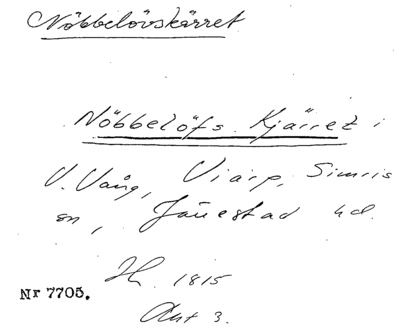 Nöbbelövskärret
Nöbbelöfs Kjärret i
V. Vång, Viarp, Simris
sn, Järestad hd.
H. 1815
Nr 7705.
Akt 3.